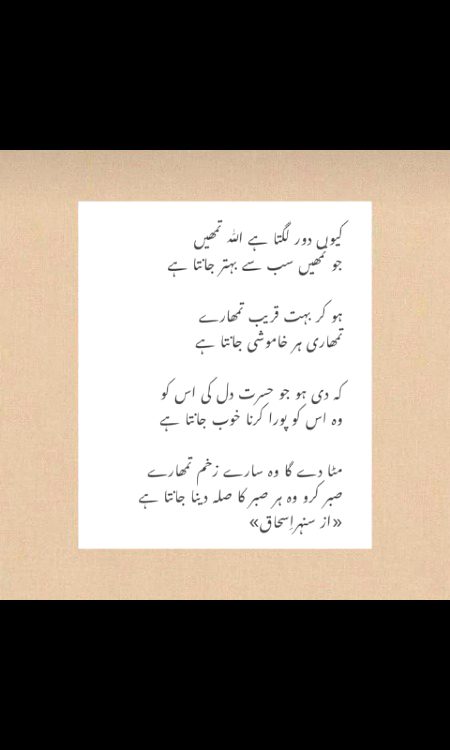 کیوں دور لگتا ہے اللہ تمھیں
جو تمھیں سب سے بہتر جانتا ہے
ہو کر بہت قریب تمھارے
تمھاری ہر خاموشی جانتا ہے
کہ دی ہو جو حسرت دل کی اس کو
وہ اس کو پورا کرنا خوب جانتا ہے
مٹا دے گا وہ سارے زخم تمھارے
صبر کرو وہ ہر صبر کا صلہ دینا جانتا ہے
«از سنہرِاسحاق»